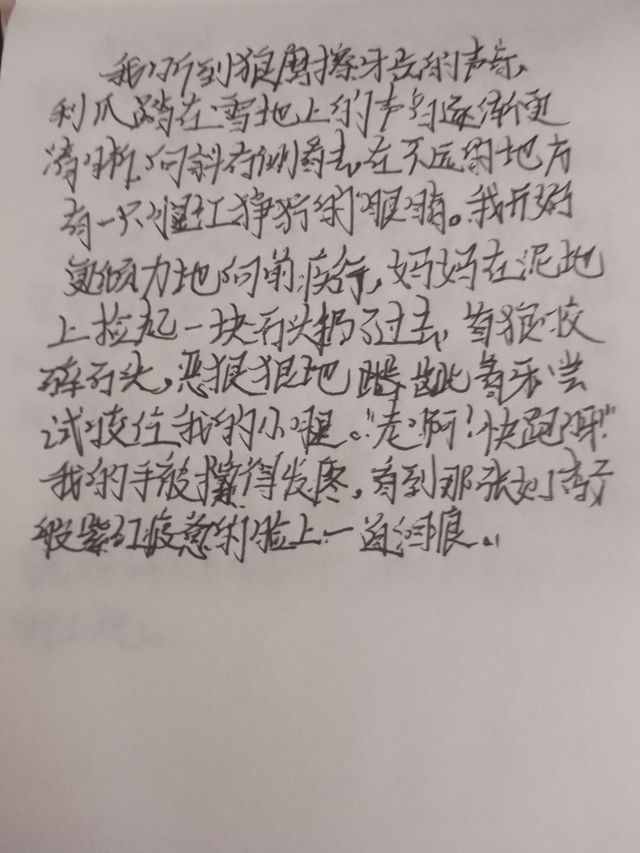 我听到狼磨擦牙齿的声音,
利爪踏在雪地上的声音逐渐更
清晰,向斜右侧看去,在不远的地方
有一只猩红狰狞的眼睛。我开始
更倾力地向前疾行,妈妈在泥地
上捡起一块石头扔了过去,首狼咬
碎石头,恶狠狠地 龇着牙尝
试咬住我的小腿。"老啊!快跑呀!"
我的手被攥得发疼,看到那张如
般紫红疲惫的脸上一道泪痕。